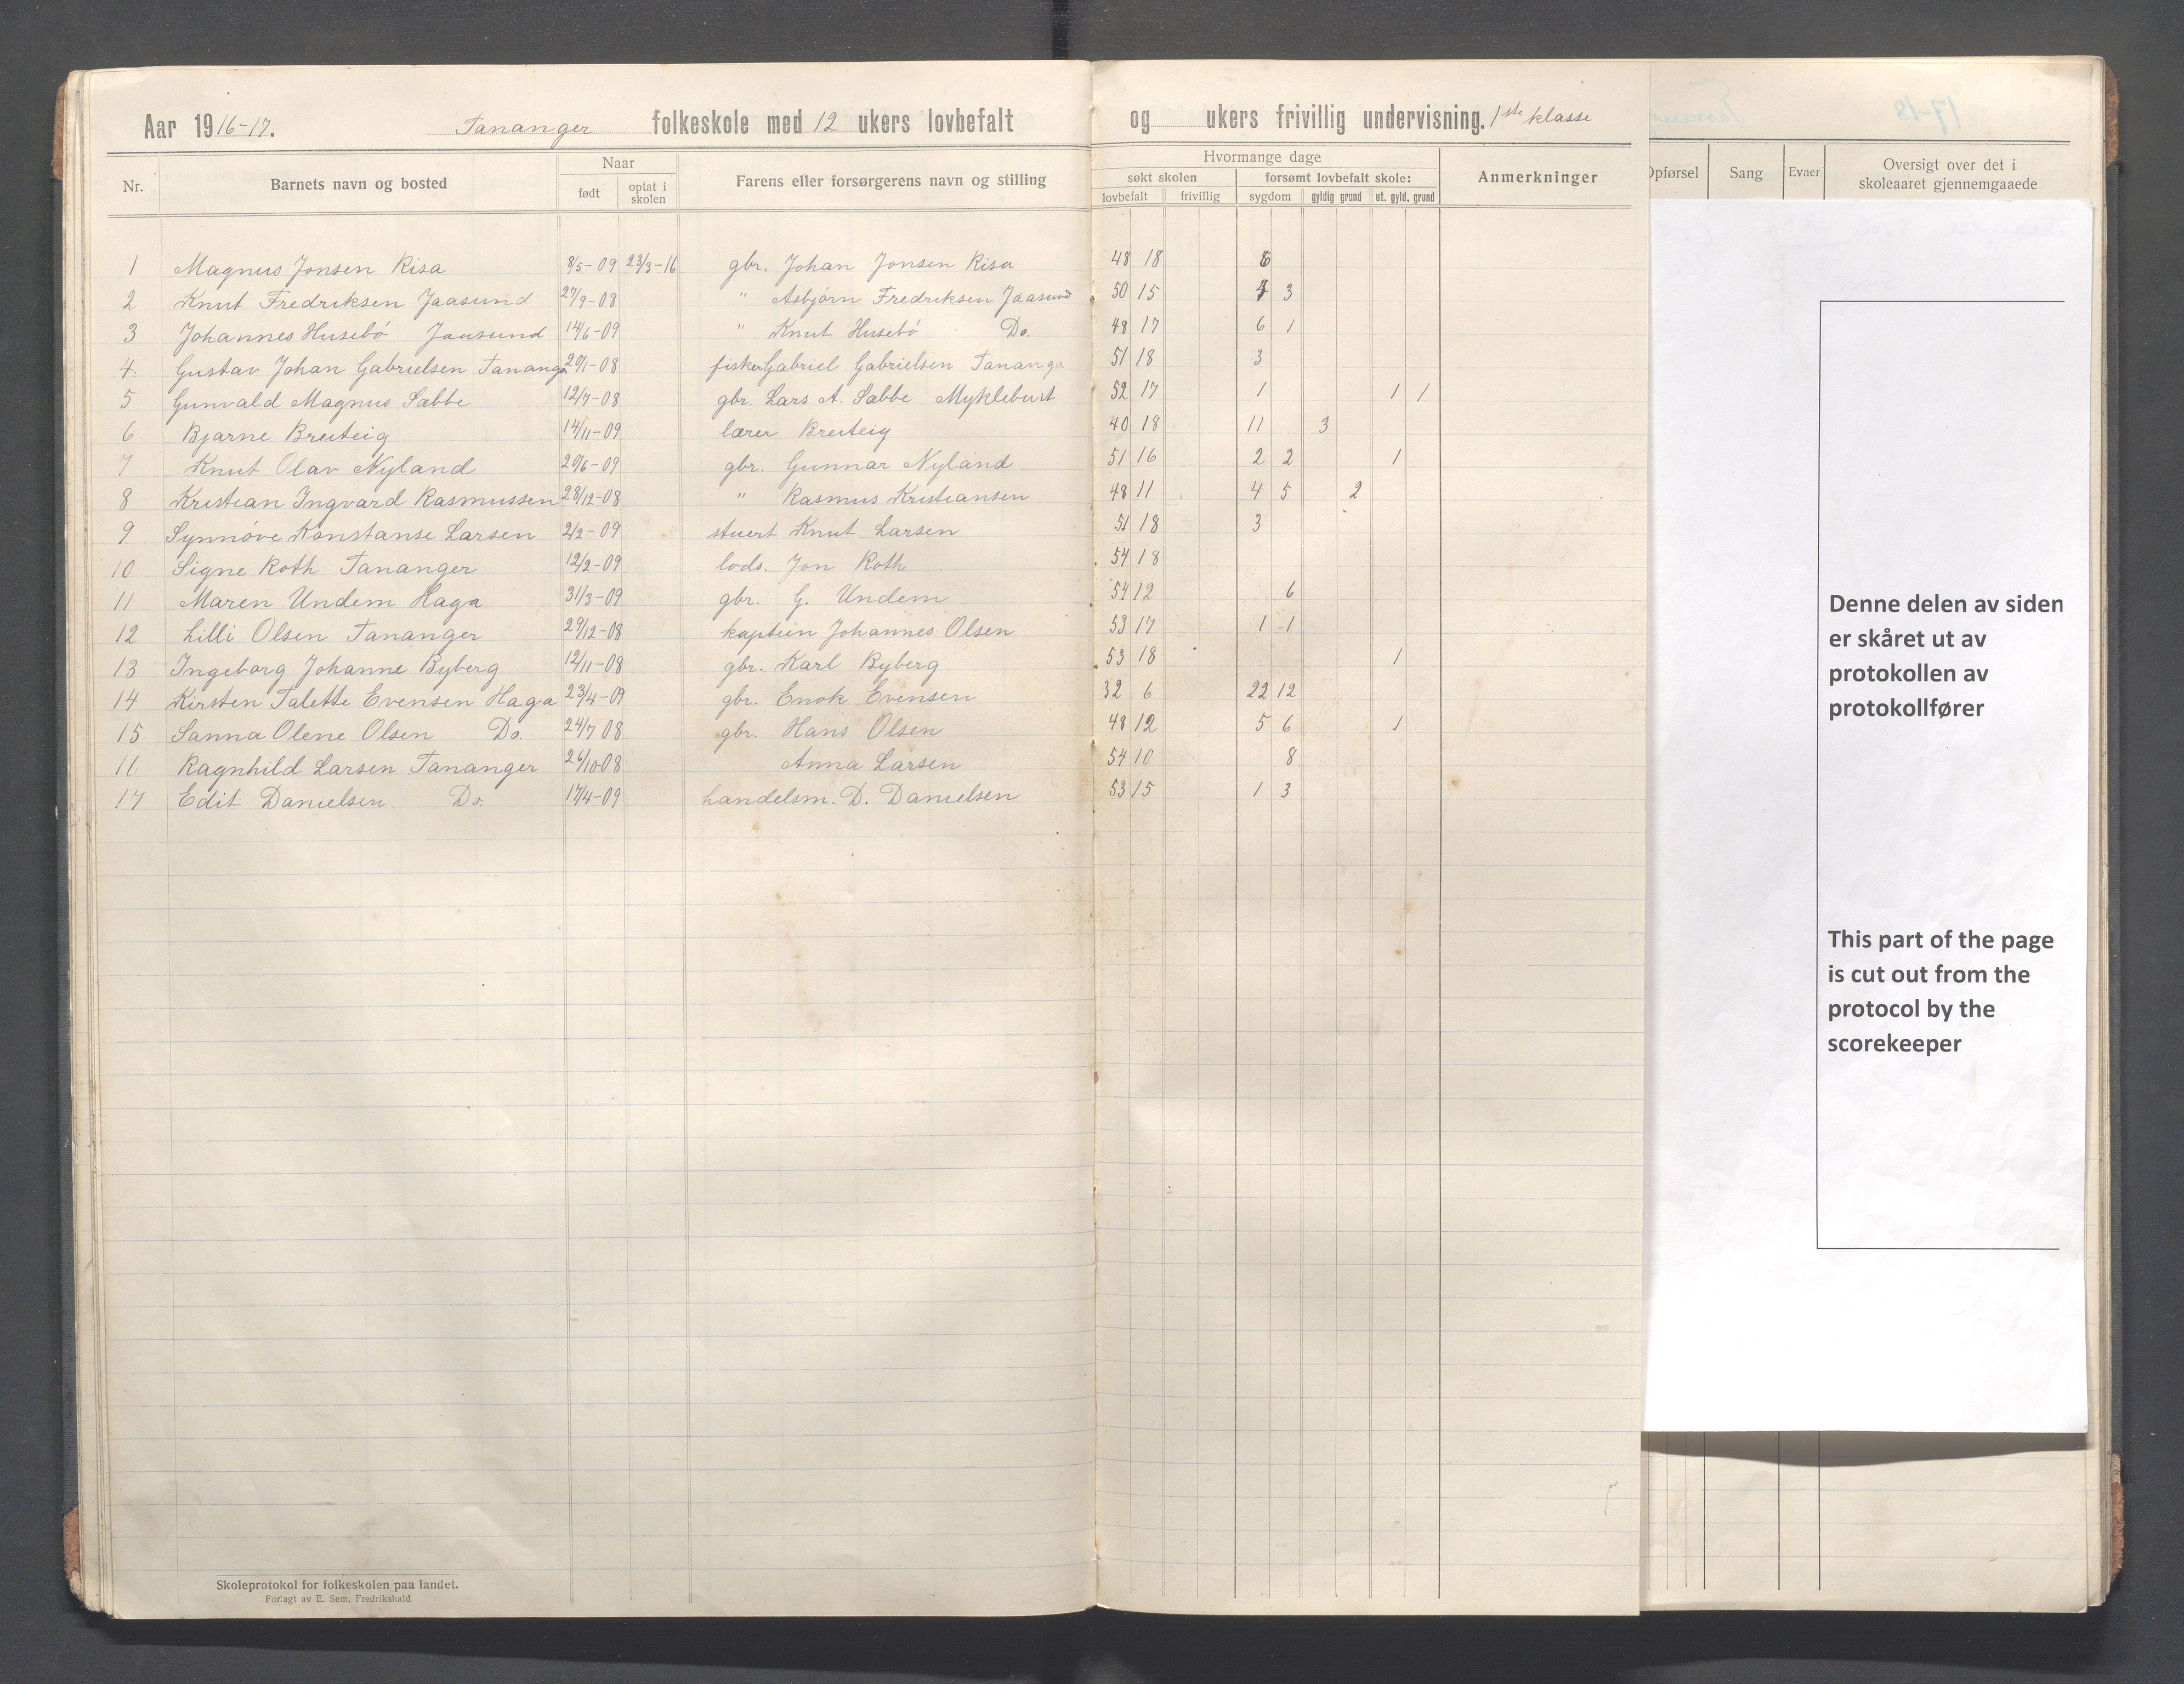 Aar 1916-17. Tananger folkeskole med 12 ukers lovbefalt og ukers frivillig undervisning. 1ste klasse
Nr. Barnets navn og bosted Naar født optat i skolen Farens eller forsørgerens navn og stilling Hvormange dage søkt skolen lovbefalt frivillig forsømt lovbefalt skole: sygdom gyldig grund ut. gyld. grund Anmerkninger
Opførsel Sang Evner Oversigt over det i skoleaaret gjennemgaaede
1 Magnus Jonsen Risa 8/5-09 23/3-16 gbr. Johan Jonsen Risa 48 18 6
2 Knut Fredriksen Jaasund 27/9-08 " Asbjørn Fredriksen Jaasund 50 15 4 3
3 Johannes Husebö Jaasund 14/6-09 " Knut Husebö Do. 48 17 6 1
4. Gustav Johan Gabrielsen Tananger 20/1-08 fisker Gabriel Gabrielsen Tananger 51 18 3
5 Gunvald Magnus Sæbbe 12/7-08 gbr. Lars A. Sæbbe Myklebust 52 17 1 1 1
6 Bjarne Breiteig 14/11-09 lærer Breiteig 40 18 11 3
7 Knut Olav Nyland 20/6-09 gbr. Gunnar Nyland 51 16 2 2 1
8 Kristian Ingvard Rasmussen 28/12-08 " Rasmus Kristiansen 48 11 4 5 2
9 Synnöve Konstanse Larsen 2/2-09 stuert Knut Larsen 51 18 3
10 Signe Roth Tananger 12/2-09 lods. Jon Roth 54 18
11 Maren Undem Haga 31/3-09 gbr. G. Undem 54 12 6
12 Lilli Olsen Tananger 29/12-08 kaptein Johannes Olsen 53 17 1 1
13 Ingeborg Johanne Byberg 12/11-08 gbr. Karl Byberg 53 18 1
14 Kirsten Talette Evensen Haga 23/4-09 gbr. Enok Evensen 32 6 22 12
15 Sanna Olene Olsen Do. 24/7 08 gbr. Hans Olsen 48 12 5 6 1
16 Ragnhild Larsen Tananger 26/10-08 Anna Larsen 54 10 8
17 Edit Danielsen Do. 17/4-09 handelsm. D. Danielsen 53 15 1 3
Skoleprotokol for folkeskolen paa landet.
Forlagt av E. Sem, Fredrikshald
Denne delen av siden
er skåret ut av
protokollen av
protokollfører
This part of the page
is cut out from the
protocol by the
scorekeeper